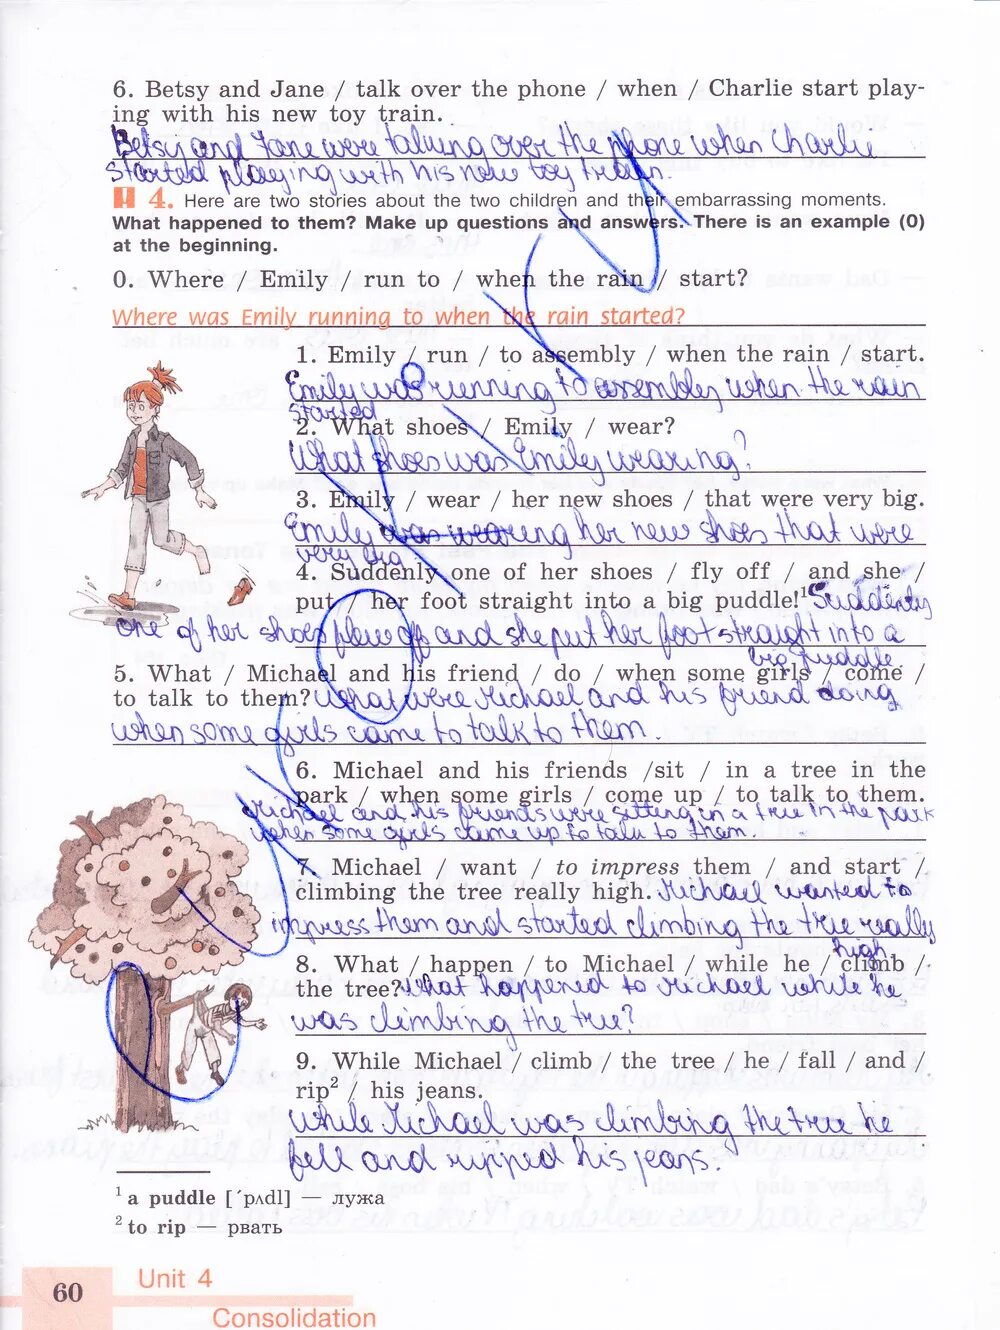 6. Betsy and Jane / talk over the phone / when / Charlie start play-
ing with his new toy train.
Betsy and Jane were talking over the phone when Charlie
started playing with his new toy train.
4. Here are two stories about the two children and their embarrassing moments.
What happened to them? Make up questions and answers. There is an example (0)
at the beginning.
0. Where / Emily / run to / when the rain / start?
Where was Emily running to when the rain started?
1. Emily / run / to assembly / when the rain / start.
Emily was running to assembly when the rain
started
2. What shoes / Emily / wear?
What shoes was Emily wearing?
3. Emily / wear / her new shoes / that were very big.
Emily was wearing her new shoes that were
very big
4. Suddenly one of her shoes / fly off / and she /
put / her foot straight into a big puddle!¹ Suddenly
one of her shoes flew off and she put her foot straight into a
big puddle.
5. What / Michael and his friend / do / when some girls / come /
to talk to them? What were Michael and his friend doing
when some girls came to talk to them.
6. Michael and his friends /sit / in a tree in the
park / when some girls / come up / to talk to them.
Michael and his friends were sitting in a tree in the park
when some girls came up to talk to them
7. Michael / want / to impress them / and start /
climbing the tree really high. Michael wanted to
impress them and started climbing the tree really
high
8. What / happen / to Michael / while he / climb /
the tree? What happened to Michael while he
was climbing the tree?
9. While Michael / climb / the tree / he / fall / and /
rip² / his jeans.
While Michael was climbing the tree he
fell and ripped his jeans.
¹ a puddle [ˊpʌdl] — лужа
² to rip — рвать
60
Unit 4
Consolidation